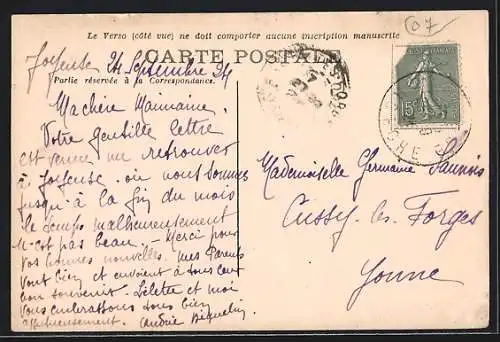 07
Le Verso (côté vue) ne doit comporter aucune inscription manuscrite
CARTE POSTALE
Partie réservée à la Correspondance.
Joyeuse 24 Septembre 24
Ma chère Marraine.
Votre gentille lettre
est venue me retrouver
à Joyeuse où nous sommes
jusqu'à la fin du mois
le temps malheureusement
n'est pas beau. — Merci pour
vos bonnes nouvelles. mes Parents
vont bien et envoient à tous leur
bon souvenir. Lilette et moi
vous embrassons tous bien
affectueusement. Andrée
Mademoiselle Germaine
Cussy les Forges
Yonne
15